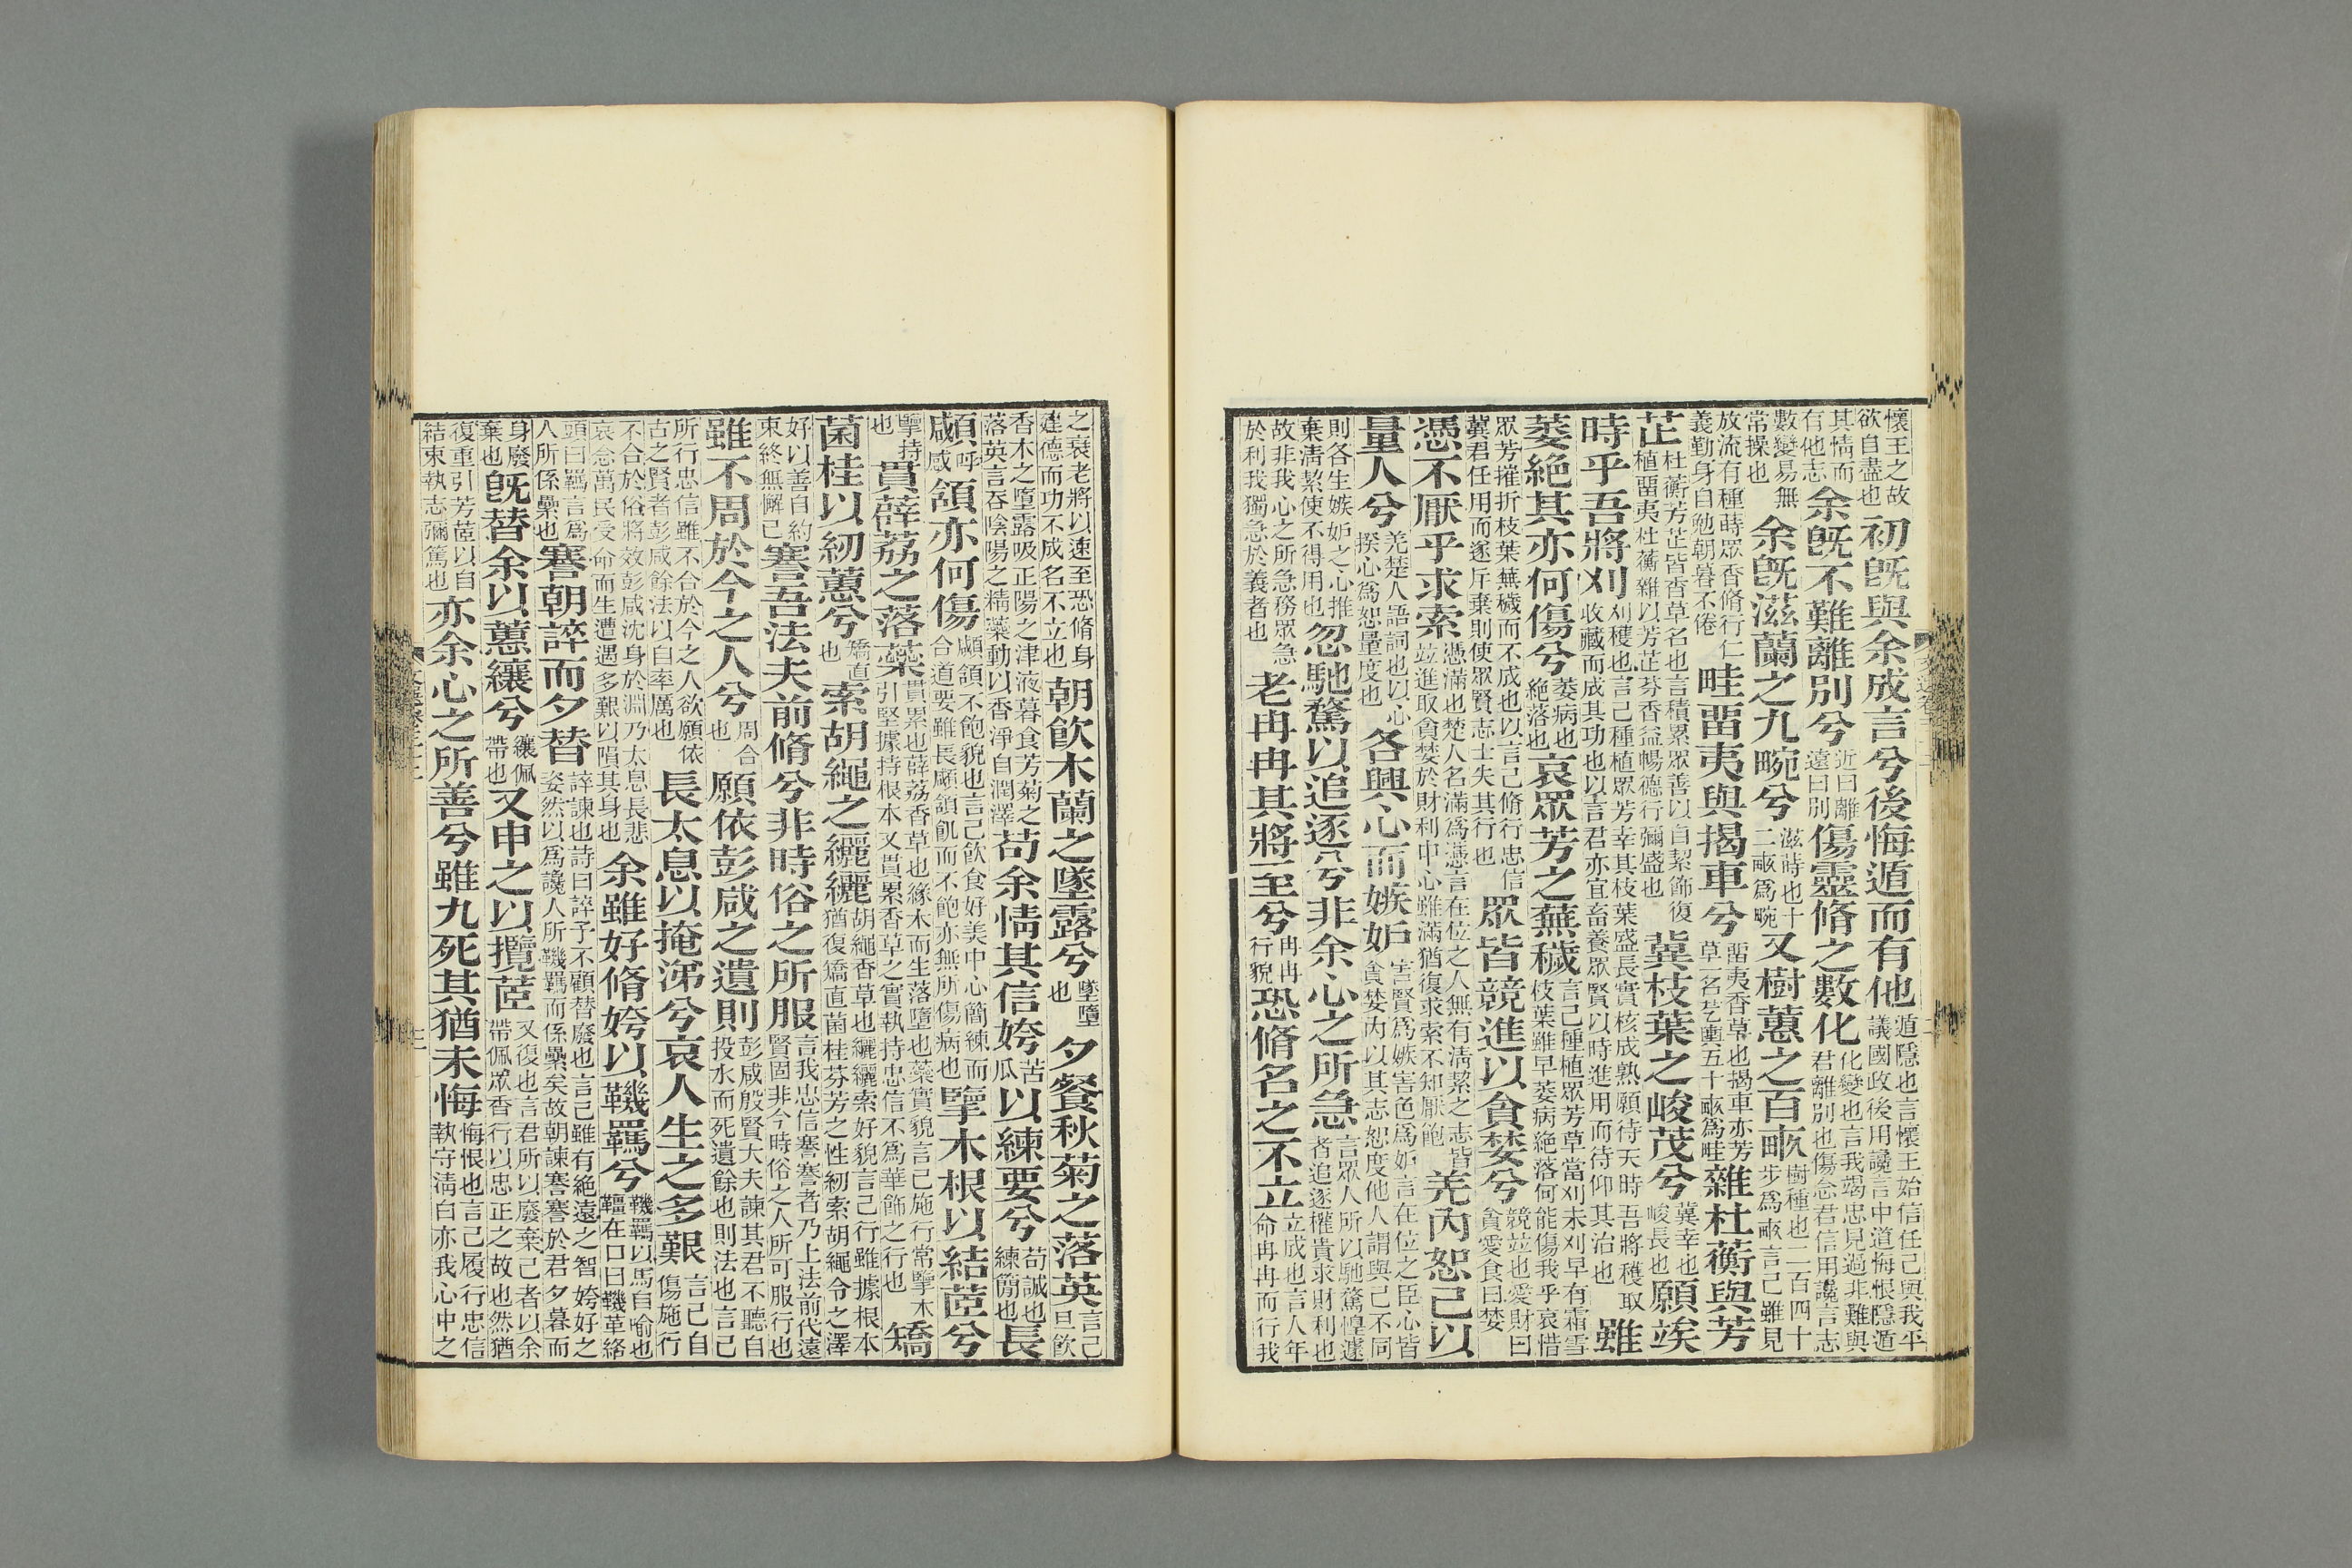 懷王之故欲自盡也初旣與余成言兮後悔遁而有他遁隱也言懷王始信任己與我平議國政後用讒言中道悔恨隱遁
其情而有他志余旣不難離別兮近曰離遠曰別傷靈脩之數化化變也言我竭忠見過非難與君離別也傷念君信用讒言志
數變易無常操也余旣滋蘭之九畹兮滋蒔也十二畝爲畹又樹蕙之百畝樹種也二百四十步爲畝言己雖見
放流有種蒔眾香脩行仁義勤身自勉朝暮不倦畦留夷與揭車兮留夷香草也揭車亦芳草一名䒗輿五十畝爲畦雜杜蘅與芳
芷杜蘅芳芷皆香草名也言積累眾善以自絜飾復植留夷杜蘅雜以芳芷芬香益暢德行彌盛也冀枝葉之峻茂兮冀幸也峻長也願竢
時乎吾將刈刈穫也言己種植眾芳幸其枝葉盛長實核成熟願待天時吾將穫取收藏而成其功也以言君亦宜畜養眾賢以時進用而待仰其治也雖
萎絕其亦何傷兮萎病也絕落也哀眾芳之蕪穢言己種植眾芳草當刈未刈早有霜雪枝葉雖早萎病絕落何能傷我乎哀惜
眾芳摧折枝葉蕪穢而不成也以言己脩行忠信冀君任用而遂斥棄則使眾賢志士失其行也眾皆競進以貪婪兮競竝也愛財曰貪愛食曰婪
憑不厭乎求索憑滿也楚人名滿爲憑言在位之人無有清絜之志皆竝進取貪婪於財利中心雖滿猶復求索不知厭飽羌內恕己以
量人兮羌楚人語詞也以心揆心爲恕量度也各興心而嫉妒害賢爲嫉害色爲妒言在位之臣心皆貪婪內以其志恕度他人謂與己不同
則各生嫉妒之心推棄清絜使不得用也忽馳騖以追逐兮非余心之所急言眾人所以馳騖惶遽者追逐權貴求財利也
故非我心之所急務眾急於利我獨急於義者也老冉冉其將至兮冉冉行貌恐脩名之不立立成也言人年命冉冉而行我
之衰老將以速至恐脩身建德而功不成名不立也朝飲木蘭之墜露兮墜墮也夕餐秋菊之落英言己旦飲
香木之墮露吸正陽之津液暮食芳菊之落英言吞陰陽之精蘂動以香淨自潤澤苟余情其信姱苦瓜以練要兮苟誠也練簡也長
顑呼感頷亦何傷顑頷不飽貌也言己飲食好美中心簡練而合道要雖長顑頷飢而不飽亦無所傷病也擥木根以結茝兮
擥持也貫薜荔之落蘂貫累也薜荔香草也緣木而生落墮也蘂實貌言己施行常擥木引堅據持根本又貫累香草之實執持忠信不爲華飾之行也矯
菌桂以紉蕙兮矯直也索胡繩之纚纚胡繩香草也纚纚索好貌言己行雖據根本猶復矯直菌桂芬芳之性紉索胡繩令之澤
好以善自約束終無懈己謇吾法夫前脩兮非時俗之所服言我忠信謇謇者乃上法前代遠賢固非今時俗之人所可服行也
雖不周於今之人兮周合也願依彭咸之遺則彭咸殷賢大夫諫其君不聽自投水而死遺餘也則法也言己
所行忠信雖不合於今之人欲願依古之賢者彭咸餘法以自率厲也長太息以掩涕兮哀人生之多艱言己自傷施行
不合於俗將效彭咸沈身於淵乃太息長悲哀念萬民受命而生遭遇多艱以隕其身也余雖好脩姱以鞿羈兮鞿羈以馬自喻也韁在口曰鞿革絡
頭曰羈言爲人所係纍也謇朝誶而夕替誶諫也詩曰誶予不顧替廢也言己雖有絕遠之智姱好之姿然以爲讒人所鞿羈而係纍矣故朝諫謇謇於君夕暮而
身廢棄也旣替余以蕙纕兮纕佩帶也又申之以攬茝又復也言君所以廢棄己者以余帶佩眾香行以忠正之故也然猶
復重引芳茝以自結束執志彌篤也亦余心之所善兮雖九死其猶未悔悔恨也言己履行忠信執守清白亦我心中之